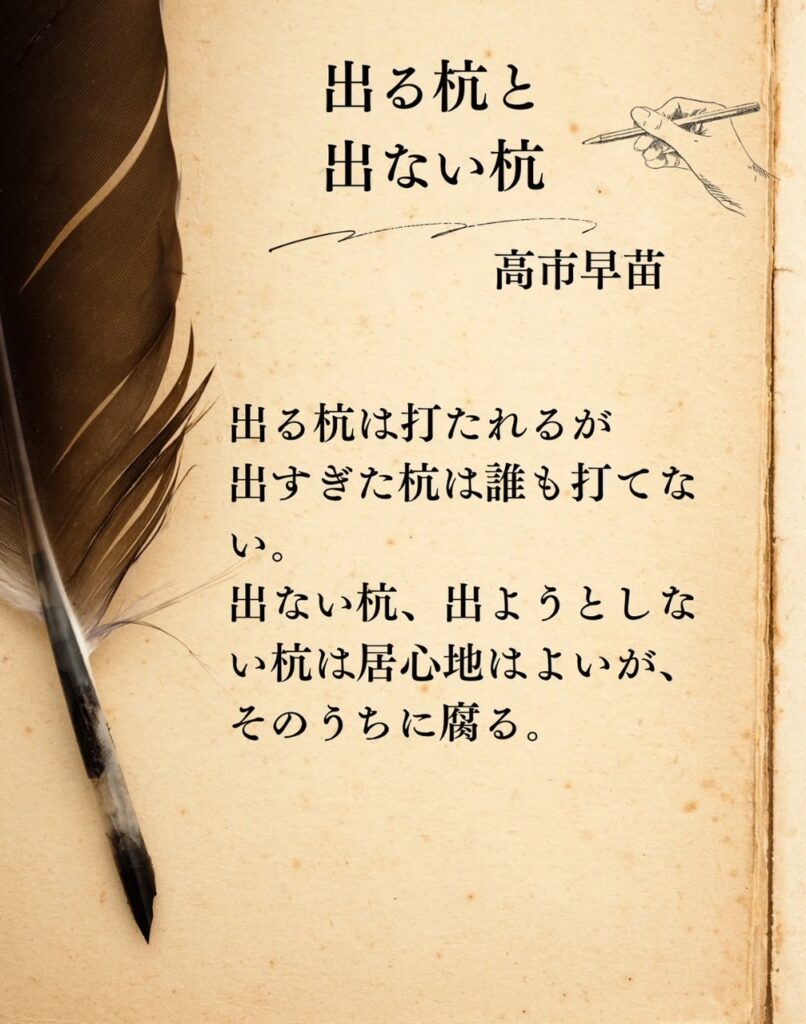 出る杭と
出ない杭
高市早苗
出る杭は打たれるが
出すぎた杭は誰も打てな
い。
出ない杭、出ようとしな
い杭は居心地はよいが、
そのうちに腐る。